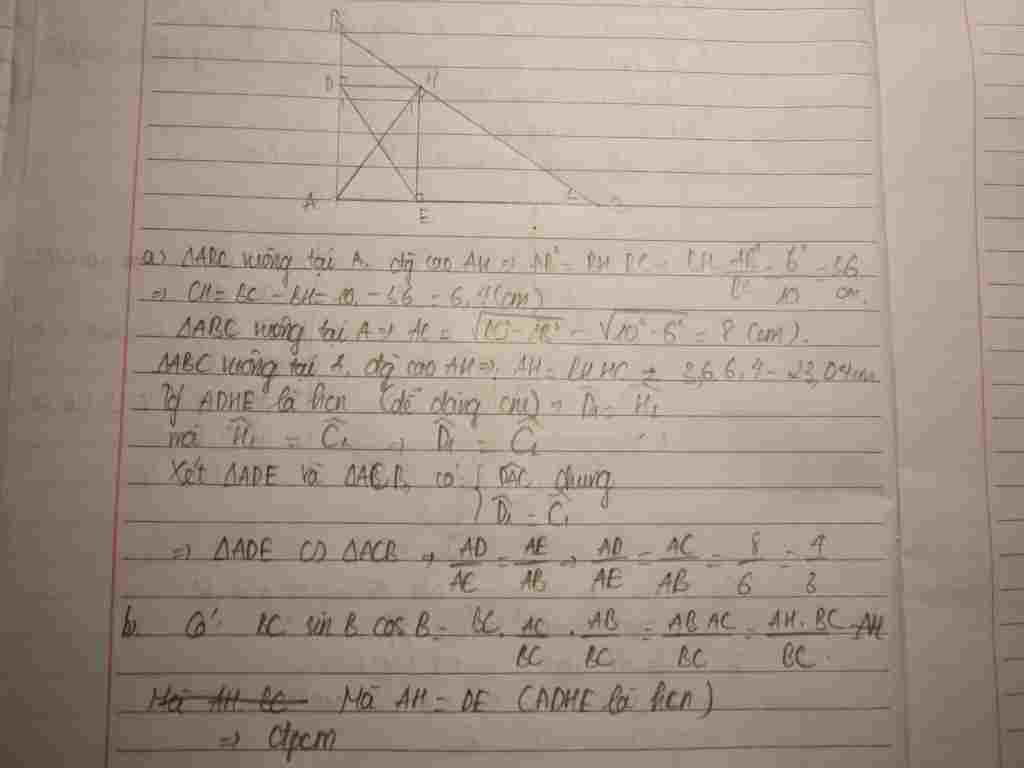 B
D H
A E C
a) ΔABC vuông tại A, đg cao AH ⇒ AB² = BH BC ⇒ BH = AB²/BC = 6²/10 = 3,6 cm.
⇒ CH = BC - BH = 10 - 3,6 = 6,4 (cm)
ΔABC vuông tại A ⇒ AC = √(10² - 6²) = 8 (cm).
ΔABC vuông tại A, đg cao AH ⇒ AH = BH HC = 3,6 6,4 = 23,04 cm
ADHE là hcn (dễ dàng cm) ⇒ D̂₁ = Ĥ₁
mà Ĥ₁ = Ĉ₁ ⇒ D̂₁ = Ĉ₁
Xét ΔADE và ΔACB có { BAC chung
D̂₁ = Ĉ₁
⇒ ΔADE ∽ ΔACB ⇒ AD/AC = AE/AB ⇒ AD/AE = AC/AB = 8/6 = 4/3
b. Có: BC sin B cos B = BC. AC/BC . AB/BC = AB AC/BC = AH. BC/BC = AH
Mà AH BC Mà AH = DE (ADHE là hcn)
⇒ đpcm